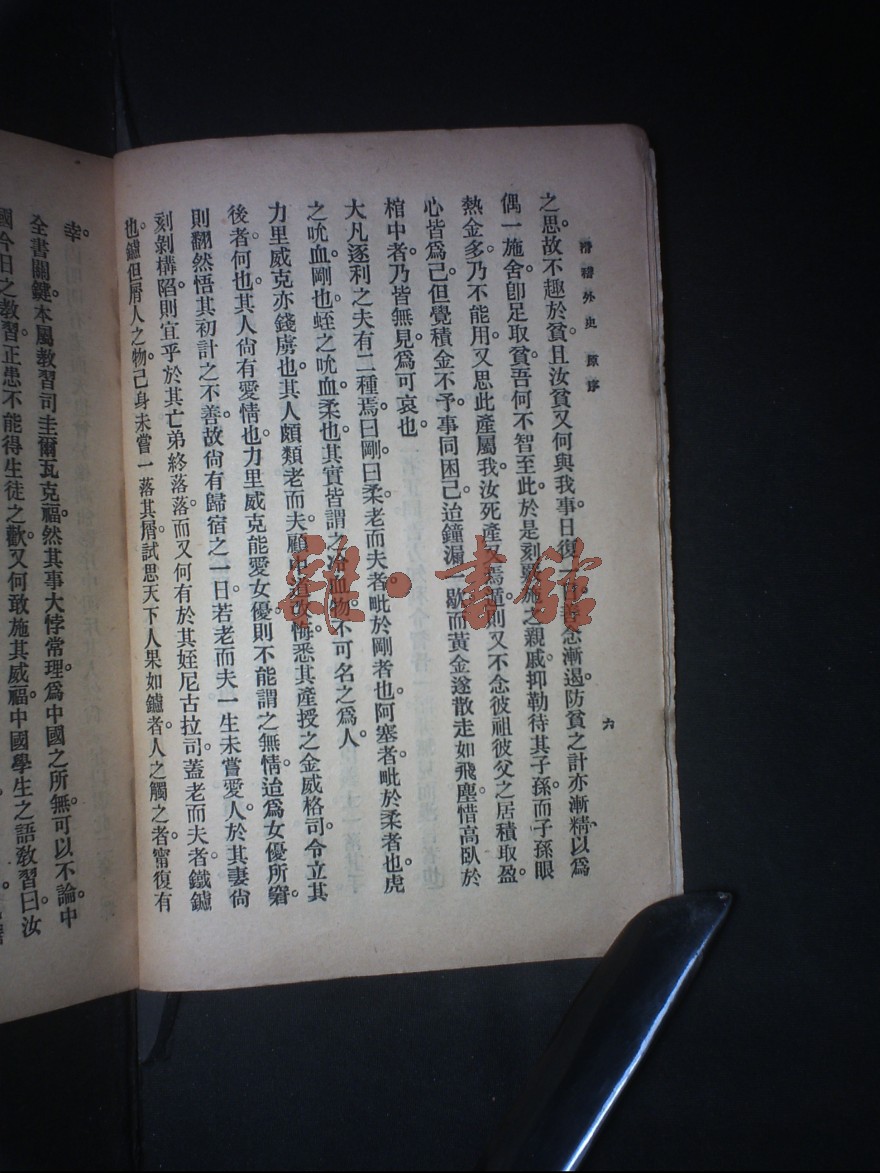 滑稽外史 原序
六
之思。故不趣於貧。且汝貧又何與我事。日復一日。善念漸遏。防貧之計亦漸精。以爲
偶一施舍。卽足取貧。吾何不智至此。於是刻覈施之親戚。抑勒待其子孫。而子孫眼
熱金多。乃不能用。又思此產屬我。汝死產又焉歸。則又不念彼祖彼父之居積取盈。
心皆爲己。但覺積金不予。事同困己。迨鐘漏一歇。而黃金遂散走如飛塵。惜高臥於
棺中者。乃皆無見。爲可哀也。
大凡逐利之夫有二種焉。曰剛曰柔。老而夫者。毗於剛者也。阿塞者。毗於柔者也。虎
之吮血。剛也。蛭之吮血。柔也。其實皆謂之冷血物。不可名之爲人。
力里威克亦錢虜也。其人頗類老而夫。顧中道改悔。悉其產授之金威格司。令立其
後者何也。其人尙有愛情也。力里威克能愛女優。則不能謂之無情。迨爲女優所窘。
則翻然悟其初計之不善。故尙有歸宿之一日。若老而夫一生未嘗愛人。於其妻尙
刻剝構陷。則宜乎於其亡弟終落落。而又何有於其姪尼古拉司。蓋老而夫者。鐵鑪
也。鑪但屑人之物。己身未嘗一落其屑。試思天下人果如鑪者。人之觸之者。甯復有
幸。
全書關鍵。本屬教習司圭爾瓦克福。然其事大悖常理。爲中國之所無。可以不論。中
國今日之教習。正患不能得生徒之歡。又何敢施其威福。中國學生之語教習曰。汝
雜·書館